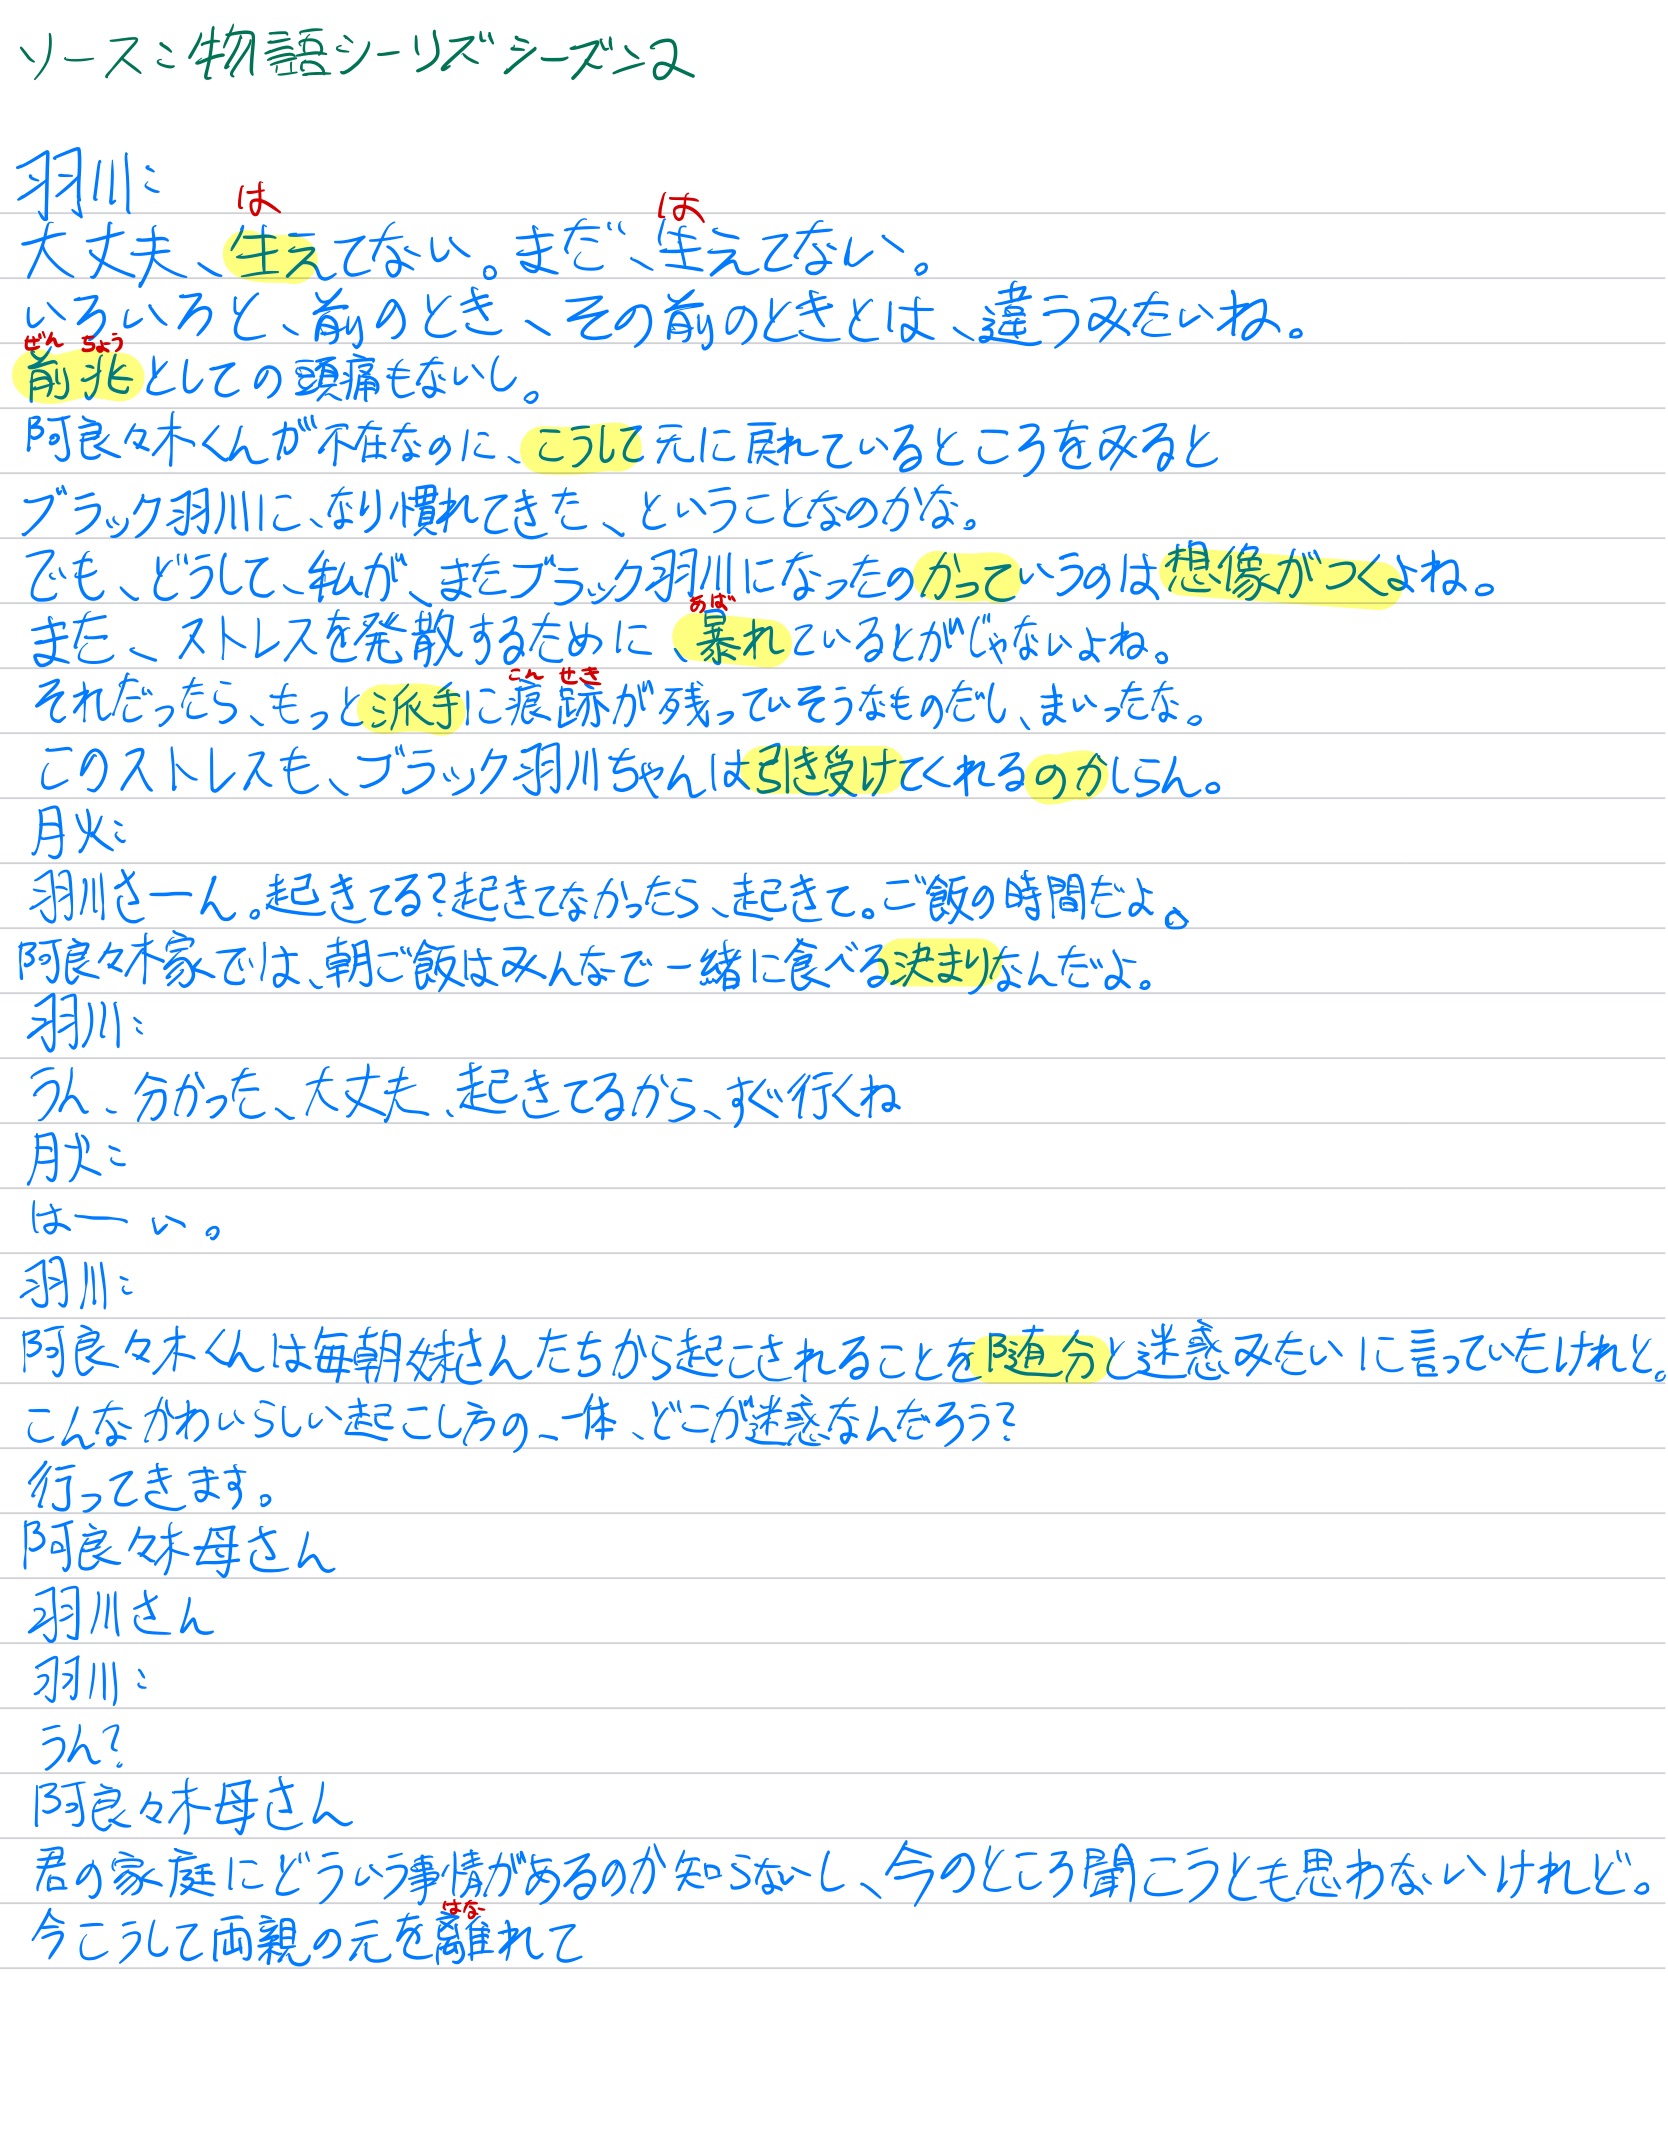 ソース:物語シーリズシーズン2
羽川:
は は
大丈夫、生えてない。まだ、生えてない。
いろいろと、前のとき、その前のときとは、違うみたいね。
ぜん ちょう
前兆としての頭痛もないし。
阿良々木くんが不在なのに、こうして元に戻れているところをみると
ブラック羽川に、なり慣れてきた、ということなのかな。
でも、どうして、私が、またブラック羽川になったのかっていうのは、想像がつくよね。
あば
また、ストレスを発散するために、暴れているとがじゃないよね。
こん せき
それだったら、もっと派手に痕跡が残っていそうなものだし、まいったな。
このストレスも、ブラック羽川ちゃんは引き受けてくれるのかしらん。
月火:
羽川さーん。起きてる?起きてなかったら、起きて。ご飯の時間だよ。
阿良々木家では、朝ご飯はみんなで一緒に食べる決まりなんだよ。
羽川:
うん、分かった、大丈夫、起きてるから、すぐ行くね
月火:
はーい。
羽川:
阿良々木くんは毎朝妹さんたちから起こされることを随分と迷惑みたいに言っていたけれど。
こんなかわいらしい起こし方の、一体、どこが迷惑なんだろう?
行ってきます。
阿良々木母さん
羽川さん
羽川:
うん?
阿良々木母さん
君の家庭にどういう事情があるのか知らないし、今のところ聞こうとも思わないけれど。
はな
今こうして両親の元を離れて